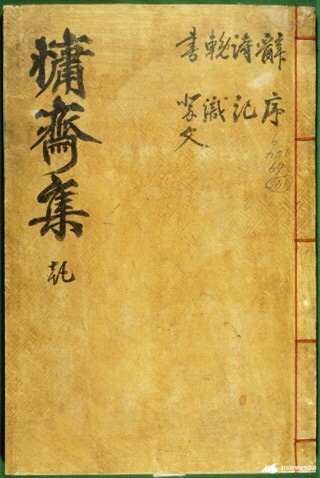 辭 序
詩 記
輓 識
書 祭文
慵齋集
乾